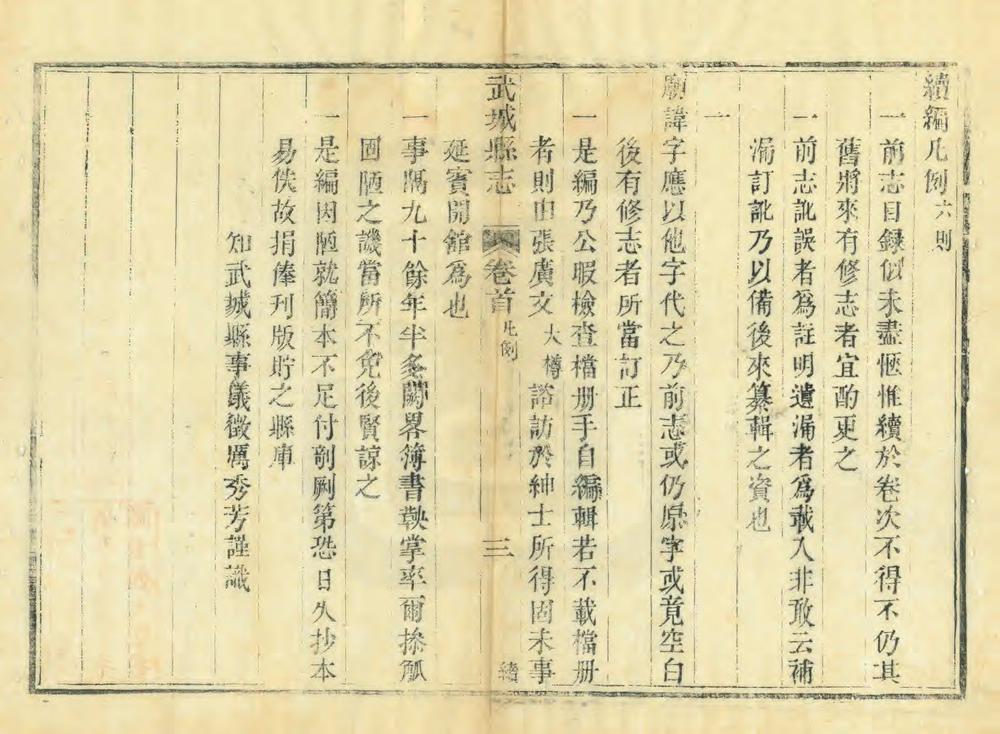 續編凡例六則
一前志目録似未盡愜惟續於卷次不得不仍其
舊將來有修志者宜酌更之
一前志訛誤者爲註明遺漏者爲載入非敢云補
漏訂訛乃以備後來纂輯之資也
一
廟諱字應以他字代之乃前志或仍原字或竟空白
後有修志者所當訂正
一是編乃公暇檢查檔册手自編輯若不載檔册
者則由張廣文大樽諮訪於紳士所得固未事
武城縣志 卷首 凡例 三 續
延賓開館爲也
一事隔九十餘年半多闕畧簿書鞅掌率爾操觚
固陋之譏當所不免後賢諒之
一是編因陋就簡本不足付剞劂第恐日久抄本
易佚故捐俸刊版貯之縣庫
知武城縣事儀徵厲秀芳謹識